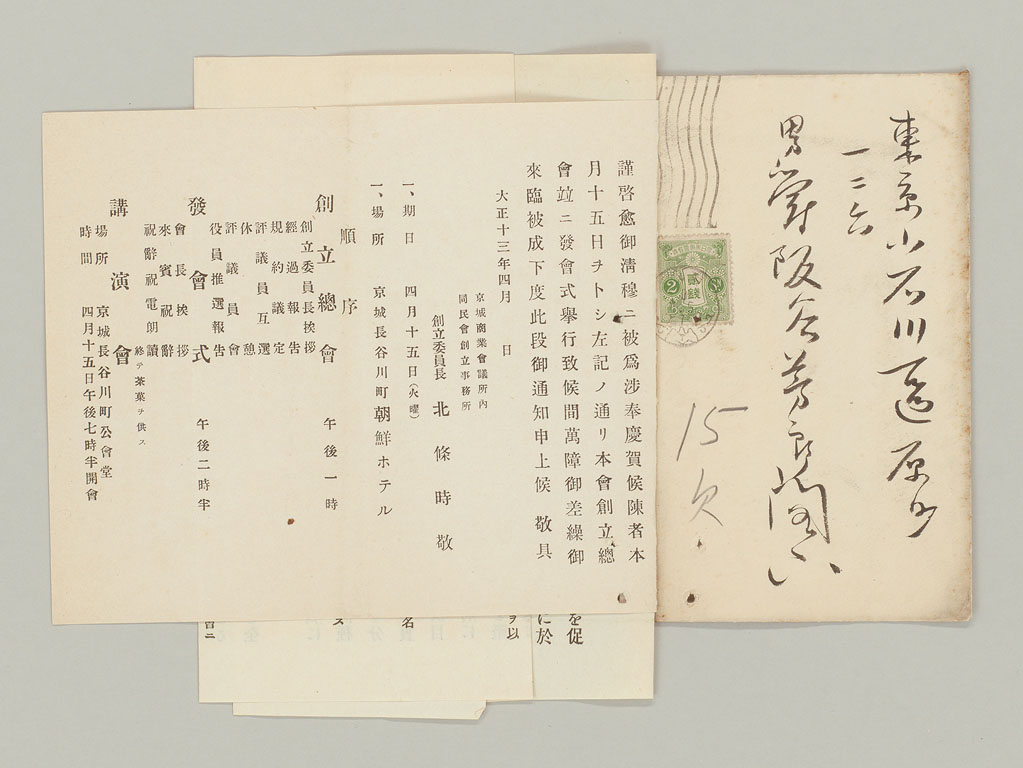 東京小石川區原町
一二六
男爵阪谷芳郎閣下
貳錢
2
15
欠
謹啓愈御淸穆ニ被爲涉奉慶賀候陳者本
月十五日ヲトシ左記ノ通リ本會創立總
會竝ニ發會式擧行致候間萬障御差繰御
來臨被成下度此段御通知申上候 敬具
大正十三年四月 日
京城商業會議所內
同民會創立事務所
創立委員長 北條時敬
一、期日 四月十五日(火曜)
一、場所 京城長谷川町朝鮮ホテル
順序
創立總會 午後一時
創立委員長挨拶
經過報告
規約議定
評議員互選
休憩
評議員會
役員推選報告
發會式 午後二時半
會長挨拶
來賓祝辭
祝辭祝電朗讀
終テ茶菓ヲ供ス
講演會
場所 京城長谷川町公會堂
時間 四月十五日午後七時半開會
を促
に於
ヲ以
名